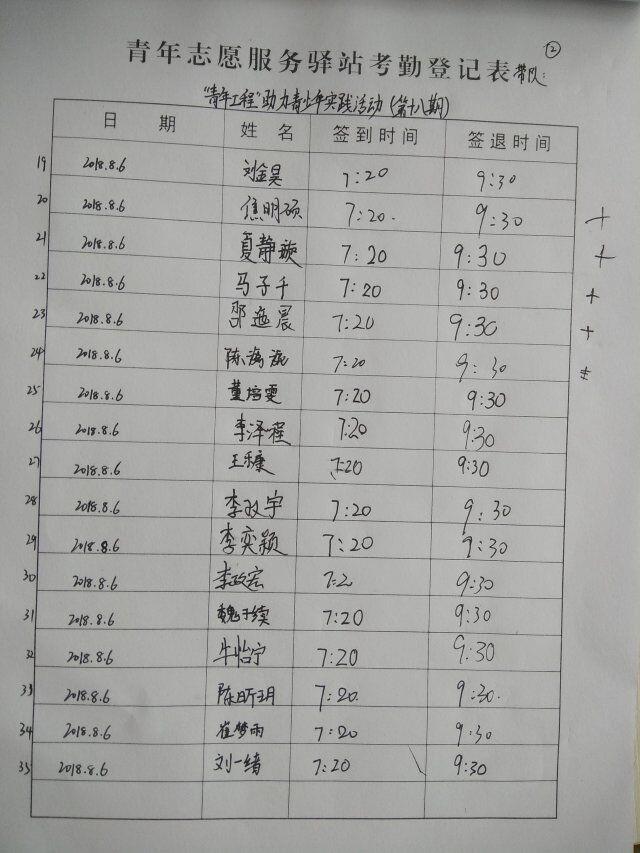 ②
青年志愿服务驿站考勤登记表 带队:
“青年工程”助力青少年实践活动(第十八期)
日 期 姓 名 签到时间 签退时间
19 2018.8.6 刘金昊 7:20 9:30
20 2018.8.6 焦明硕 7:20. 9:30 +
21 2018.8.6 夏静璇 7:20 9:30 +
22 2018.8.6 马子千 7:20 9:30 +
23 2018.8.6 晨 7:20 9:30 +
24 2018.8.6 陈 7:20 9:30 ±
25 2018.8.6 董培雯 7:20 9:30
26 2018.8.6 李泽程 7:20 9:30
27 2018.8.6 王 7:20 9:30
28 2018.8.6 李政宇 7:20 9:30
29 2018.8.6 李奕颖 7:20 9:30
30 2018.8.6 李政宏 7:2 9:30
31 2018.8.6 魏子续 7:20 9:30
32 2018.8.6 牛怡宁 7:20 9:30
33 2018.8.6 陈昕玥 7:20. 9:30.
34 2018.8.6 崔梦雨 7:20 9:30
35 2018.8.6 刘一绪 7:20 9:30